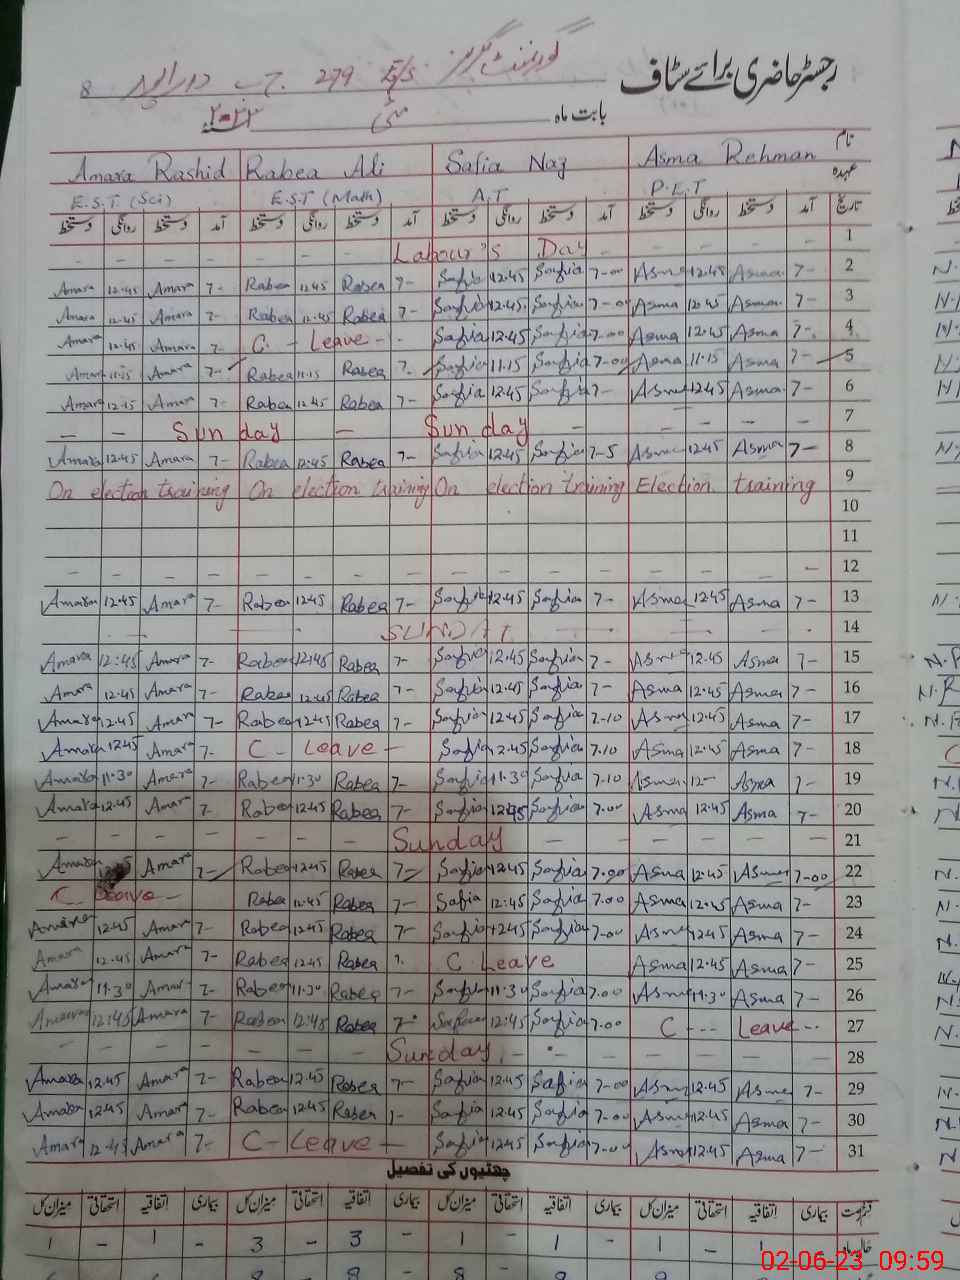 رجسٹر حاضری برائے سٹاف گورنمنٹ گرلز E/s 279 ج ب 8
بابت ماہ مئی ۲۰۲۳
نام Asma Rehman Safia Naz Rabea Ali Amara Rashid
عہدہ P.E.T A.T E.S.T (Math) E.S.T (Sci)
تاریخ آمد دستخط روانگی دستخط آمد دستخط روانگی دستخط آمد دستخط روانگی دستخط آمد دستخط روانگی دستخط
- - - - Labour's Day - - - - 1
Amara 12.45 Amara 7- Rabea 12.45 Rabea 7- Safia 12.45 Safia 7-00 Asma 12.45 Asma 7- 2
Amara 12.45 Amara 7- Rabea 12.45 Rabea 7- Safia 12.45 Safia 7-00 Asma 12.45 Asma 7- 3
Amara 12.45 Amara 7- C - Leave - Safia 12.45 Safia 7.00 Asma 12.45 Asma 7- 4
Amara 11.15 Amara 7- Rabea 11.15 Rabea 7. Safia 11.15 Safia 7-00 Asma 11.15 Asma 7- 5
Amara 12.15 Amara 7- Rabea 12.45 Rabea 7- Safia 12.45 Safia 7- Asma 12.45 Asma 7- 6
- - Sunday - Sunday - - - - 7
Amara 12.45 Amara 7- Rabea 12.45 Rabea 7- Safia 12.45 Safia 7-5 Asma 12.45 Asma 7- 8
On election training On election training On election training Election training 9
10
11
- - - - - - - - 12
Amara 12.45 Amara 7- Rabea 12.45 Rabea 7- Safia 12.45 Safia 7- Asma 12.45 Asma 7- 13
- - SUNDAY - - - 14
Amara 12:45 Amara 7- Rabea 12.45 Rabea 7- Safia 12.45 Safia 7- Asma 12.45 Asma 7- 15
Amara 12.45 Amara 7- Rabea 12.45 Rabea 7- Safia 12.45 Safia 7- Asma 12.45 Asma 7- 16
Amara 12.45 Amara 7- Rabea 12.45 Rabea 7- Safia 12.45 Safia 7-10 Asma 12.45 Asma 7- 17
Amara 12.45 Amara 7- C - Leave - Safia 12.45 Safia 7.10 Asma 12.45 Asma 7- 18
Amara 11.30 Amara 7- Rabea 11.30 Rabea 7- Safia 11.30 Safia 7.10 Asma 12- Asma 7- 19
Amara 12.45 Amara 7- Rabea 12.45 Rabea 7- Safia 12.45 Safia 7.00 Asma 12.45 Asma 7- 20
- - - - Sunday - - - - 21
Amara Amara 7- Rabea 12.45 Rabea 7- Safia 12.45 Safia 7.00 Asma 12.45 Asma 7-00 22
C Leave - Rabea 12.45 Rabea 7- Safia 12.45 Safia 7.00 Asma 12.45 Asma 7- 23
Amara 12.45 Amara 7- Rabea 12.45 Rabea 7- Safia 12.45 Safia 7-00 Asma 12.45 Asma 7- 24
Amara 12.45 Amara 7- Rabea 12.45 Rabea 7. C Leave Asma 12.45 Asma 7- 25
Amara 11.30 Amara 7- Rabea 11.30 Rabea 7- Safia 11.30 Safia 7.00 Asma 11.30 Asma 7- 26
Amara 12:45 Amara 7- Rabea 12:45 Rabea 7- Safia 12:45 Safia 7.00 C --- Leave -- 27
- - - - Sunday - - - - 28
Amara 12.45 Amara 7- Rabea 12.45 Rabea 7- Safia 12.45 Safia 7-00 Asma 12.45 Asma 7- 29
Amara 12.45 Amara 7- Rabea 12.45 Rabea 7- Safia 12.45 Safia 7-00 Asma 12.45 Asma 7- 30
Amara 12.45 Amara 7- C - Leave - Safia 12.45 Safia 7.00 Asma 12.45 Asma 7- 31
چھٹیوں کی تفصیل
بیماری اتفاقیہ استحقاقی میزان کل بیماری اتفاقیہ استحقاقی میزان کل بیماری اتفاقیہ استحقاقی میزان کل بیماری اتفاقیہ استحقاقی میزان کل
1 - 1 - 3 - 3 - 1 - 1 - 1 - 1
02-06-23 09:59